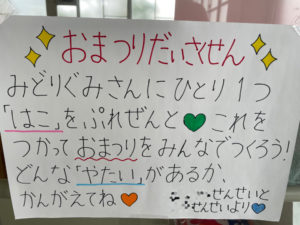 おまつりだいさくせん
みどりぐみさんにひとり1つ
「はこ」をぷれぜんと💚これを
つかっておまつりをみんなでつくろう!
どんな「やたい」があるか、
かんがえてね🧡
せんせいと
せんせいより💙